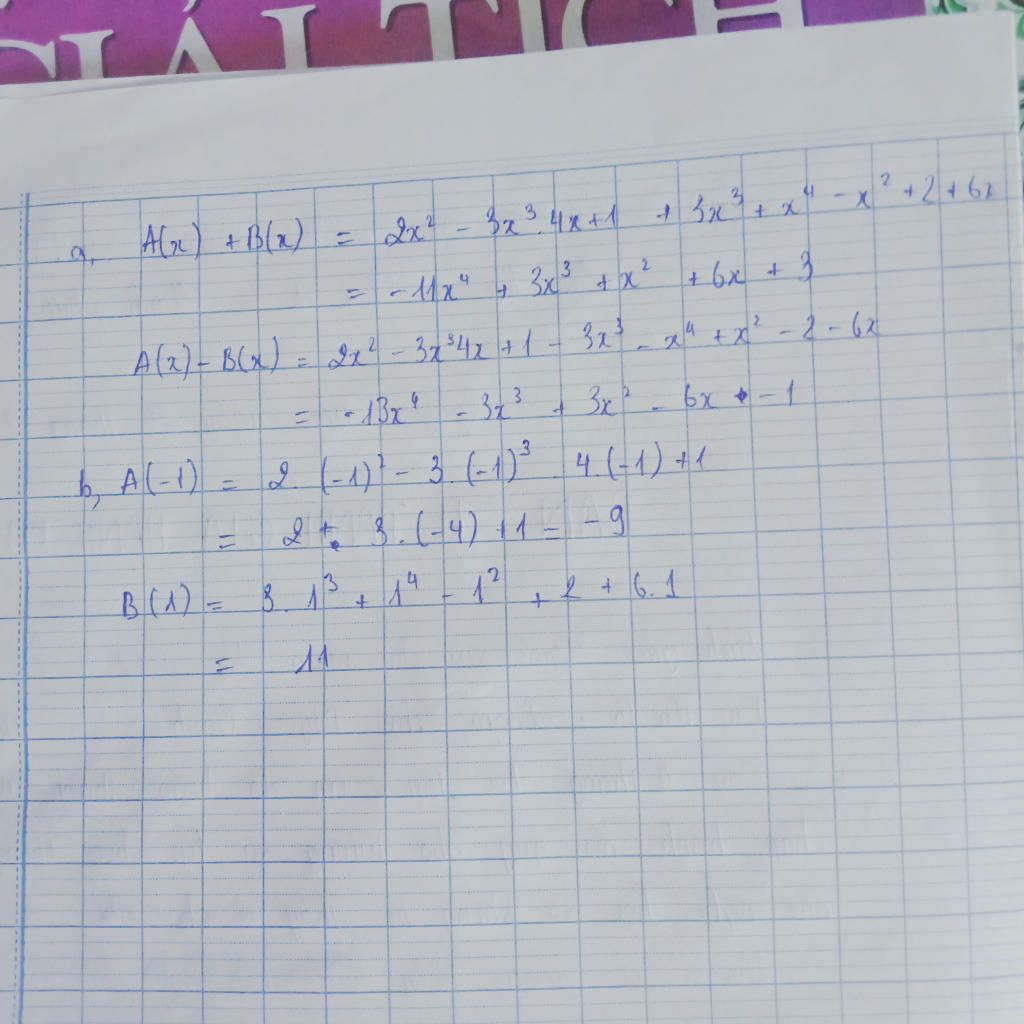 GIẢI TÍCH
a, A(x) + B(x) = 2x² - 3x³.4x+1 + 3x³ + x⁴ - x² + 2 + 6x
= -11x⁴ + 3x³ + x² + 6x + 3
A(x) - B(x) = 2x² - 3x³4x + 1 - 3x³ - x⁴ + x² - 2 - 6x
= -13x⁴ - 3x³ + 3x² - 6x - 1
b, A(-1) = 2 . (-1)² - 3 . (-1)³ . 4 . (-1) + 1
= 2 + 3 . (-4) + 1 = -9
B(1) = 3 . 1³ + 1⁴ - 1² + 2 + 6.1
= 11